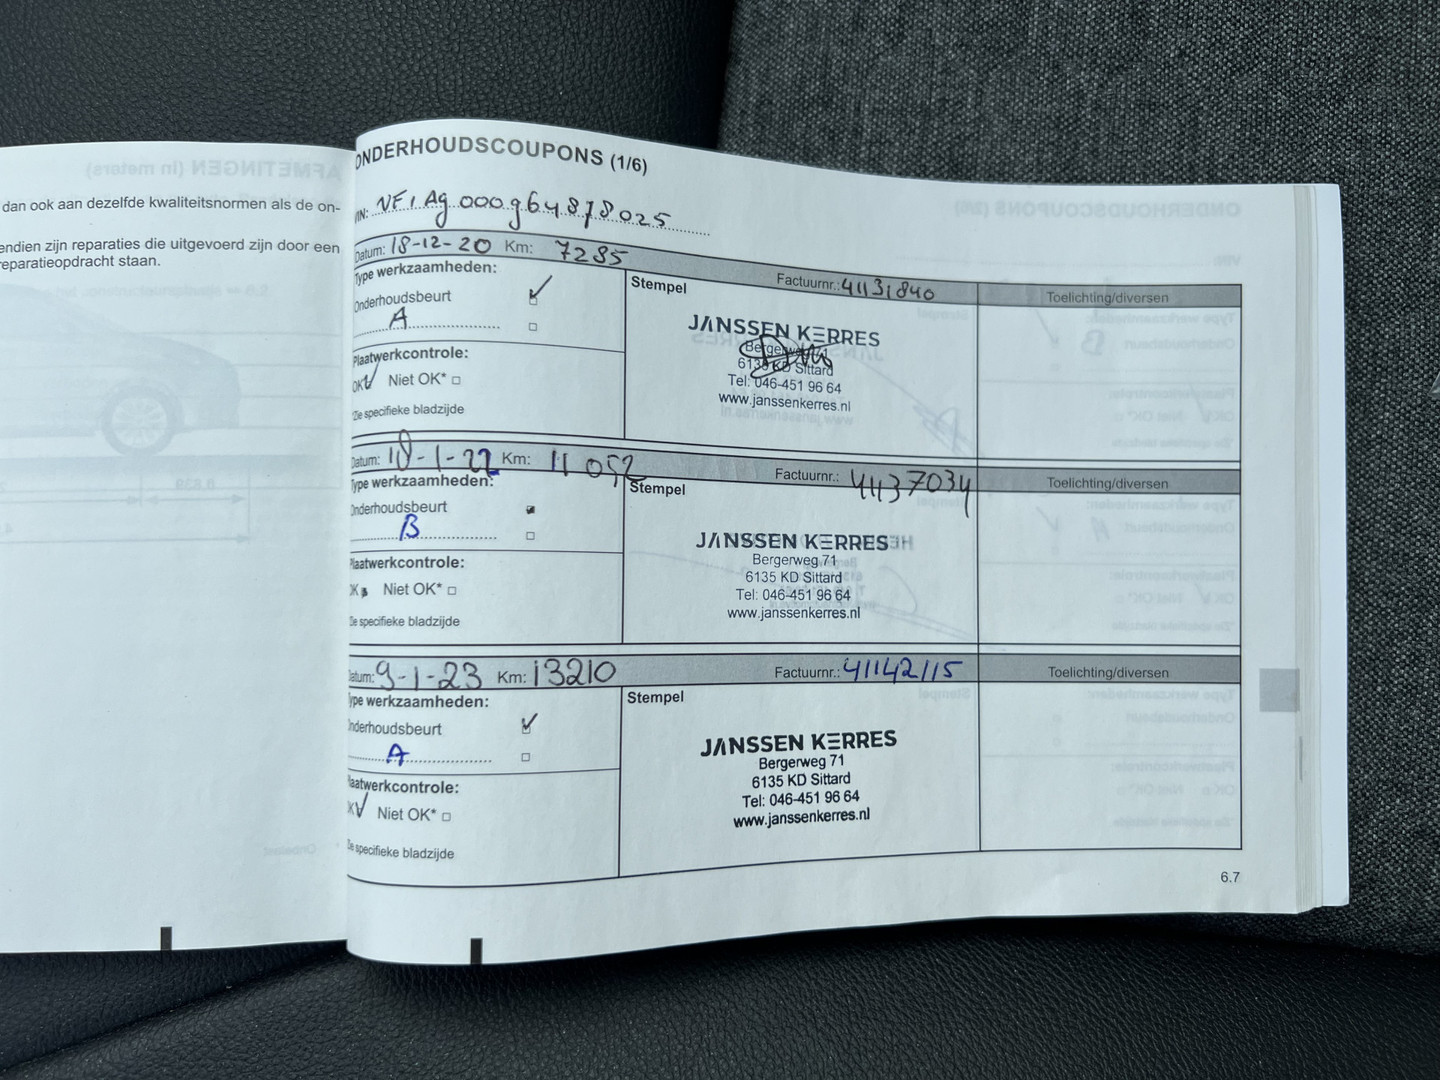 dan ook aan dezelfde kwaliteitsnormen als de on-
endien zijn reparaties die uitgevoerd zijn door een
eparatieopdracht staan.
ONDERHOUDSCOUPONS (1/6)
VIN: VF1Ag000g64878025
Datum: 18-12-20 Km: 7285
Factuurnr.: 41131840
Toelichting/diversen
Type werkzaamheden:
Onderhoudsbeurt
A
Plaatwerkcontrole:
OK Niet OK*
*Zie specifieke bladzijde
Stempel
JANSSEN KERRES
Bergerweg 71
6135 KD Sittard
Tel: 046-451 96 64
www.janssenkerres.nl
Datum: 18-1-22 Km: 11052
Factuurnr.: 41137034
Toelichting/diversen
Type werkzaamheden:
Onderhoudsbeurt
B
Plaatwerkcontrole:
OK Niet OK*
Zie specifieke bladzijde
Stempel
JANSSEN KERRES
Bergerweg 71
6135 KD Sittard
Tel: 046-451 96 64
www.janssenkerres.nl
Datum: 9-1-23 Km: 13210
Factuurnr.: 41142115
Toelichting/diversen
Type werkzaamheden:
Onderhoudsbeurt
A
Plaatwerkcontrole:
OK Niet OK*
Zie specifieke bladzijde
Stempel
JANSSEN KERRES
Bergerweg 71
6135 KD Sittard
Tel: 046-451 96 64
www.janssenkerres.nl
6.7